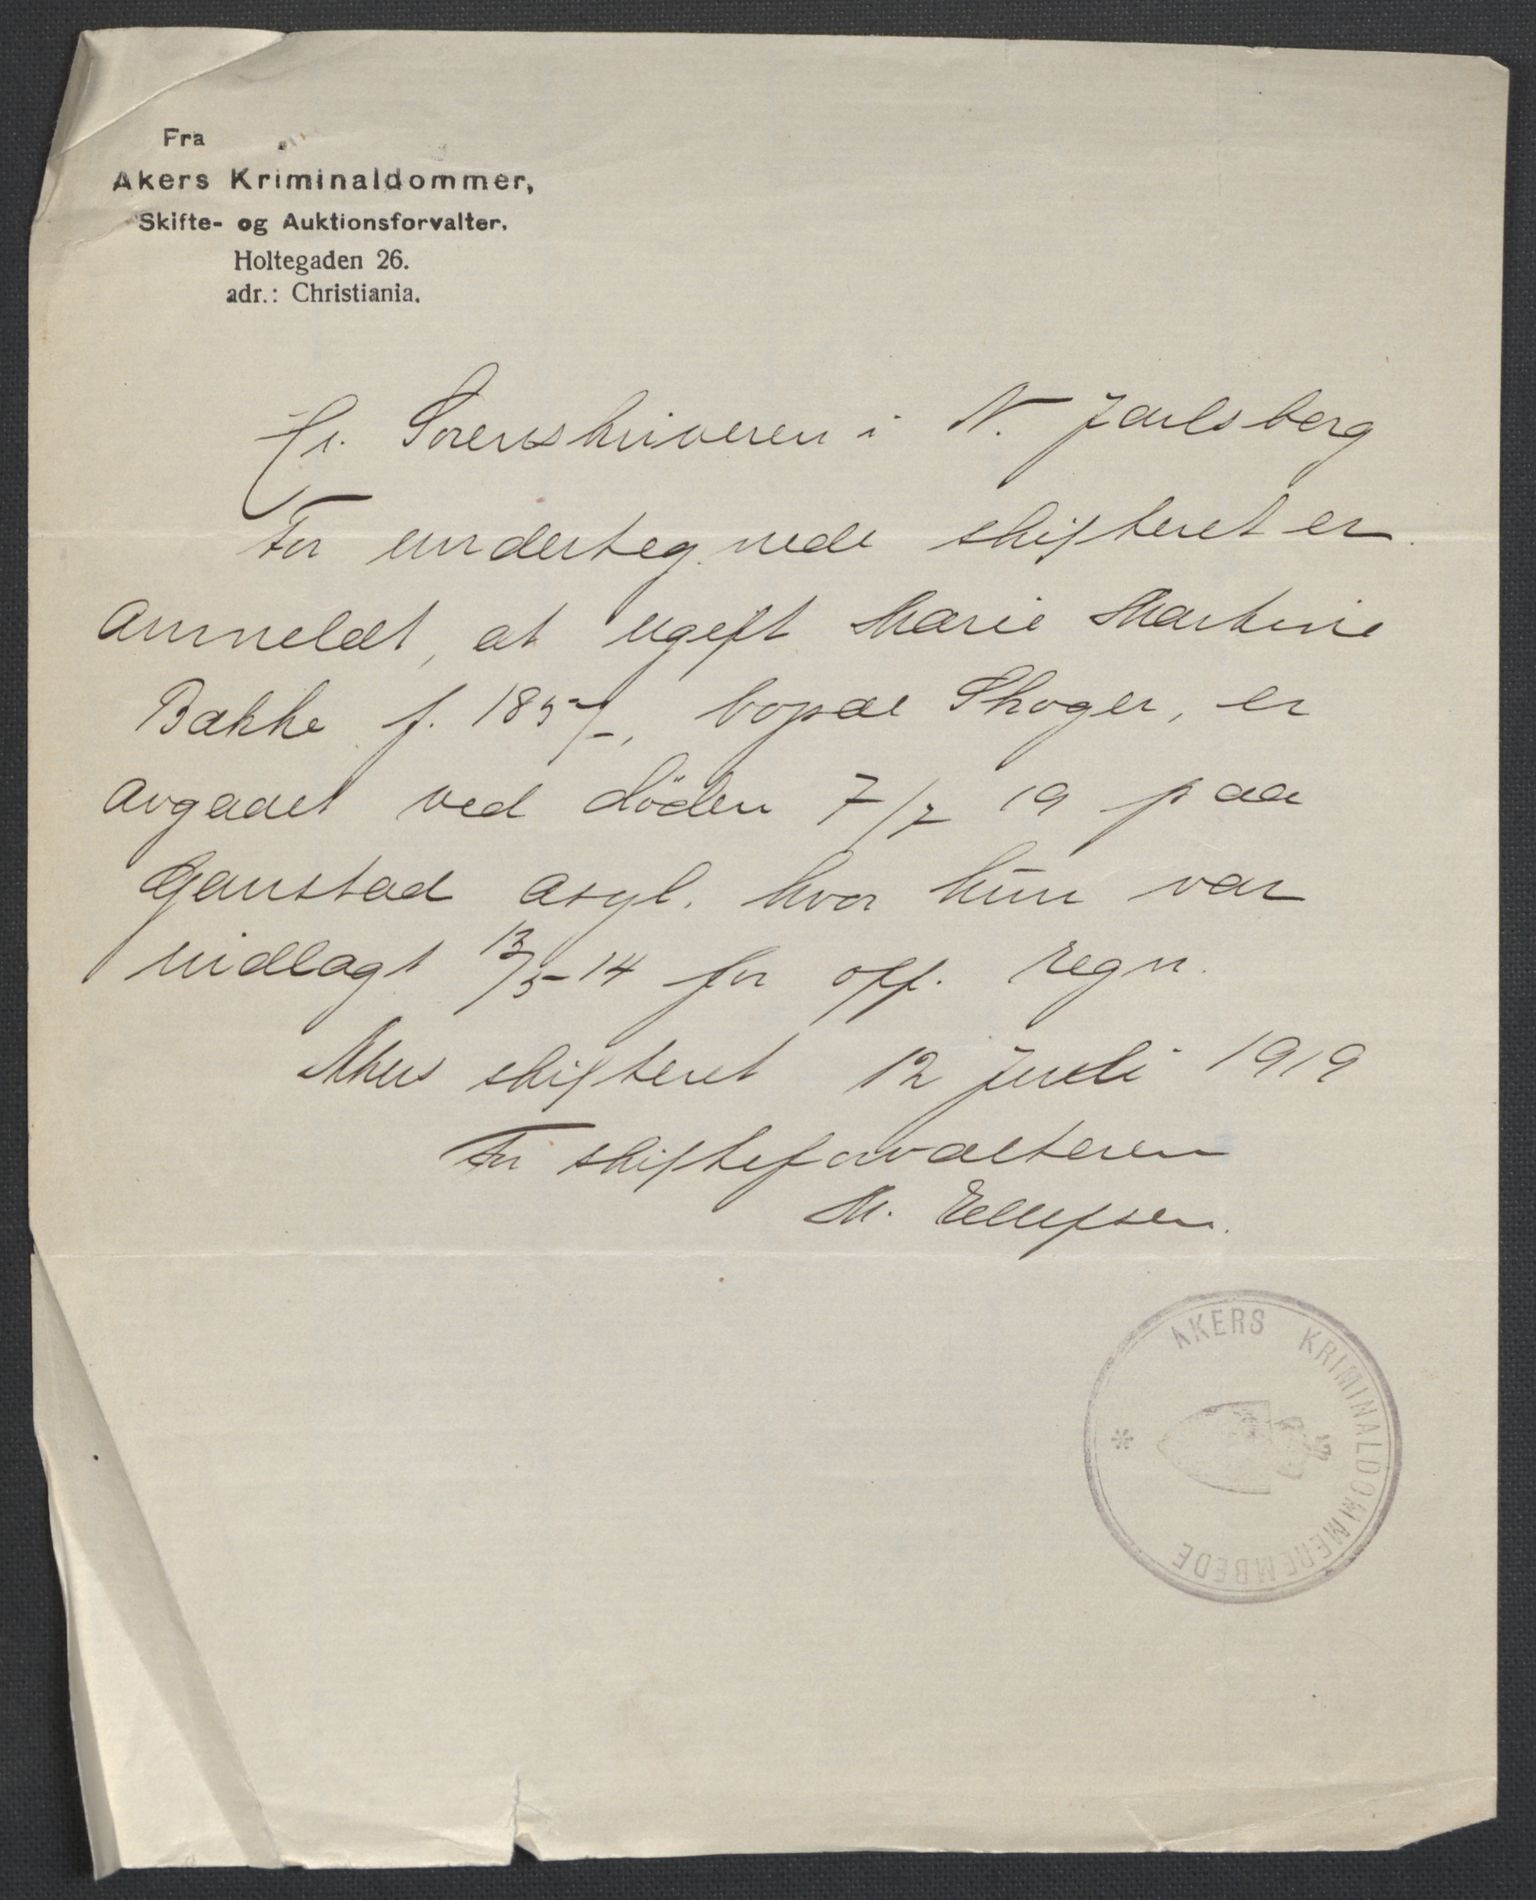 Fra
Akers Kriminaldommer,
Skifte- og Auktionsforvalter.
Holtegaden 26.
adr.: Christiania.
Hr. Sorenskriveren i N. Jarlsberg
For undertegnede skifteret er
anmeldt, at ugift Marie Martine
Bakke f. bopæl Skoger, er
avgaaet ved døden 7/7 19 paa
Gaustad asyl. hvor hun var
indlagt 13/5-14 for off. regn.
Akers skifteret 12 juli 1919
For skifteforvalteren
M. Ellefsen.
AKERS KRIMINALDOMMEREMBEDE *